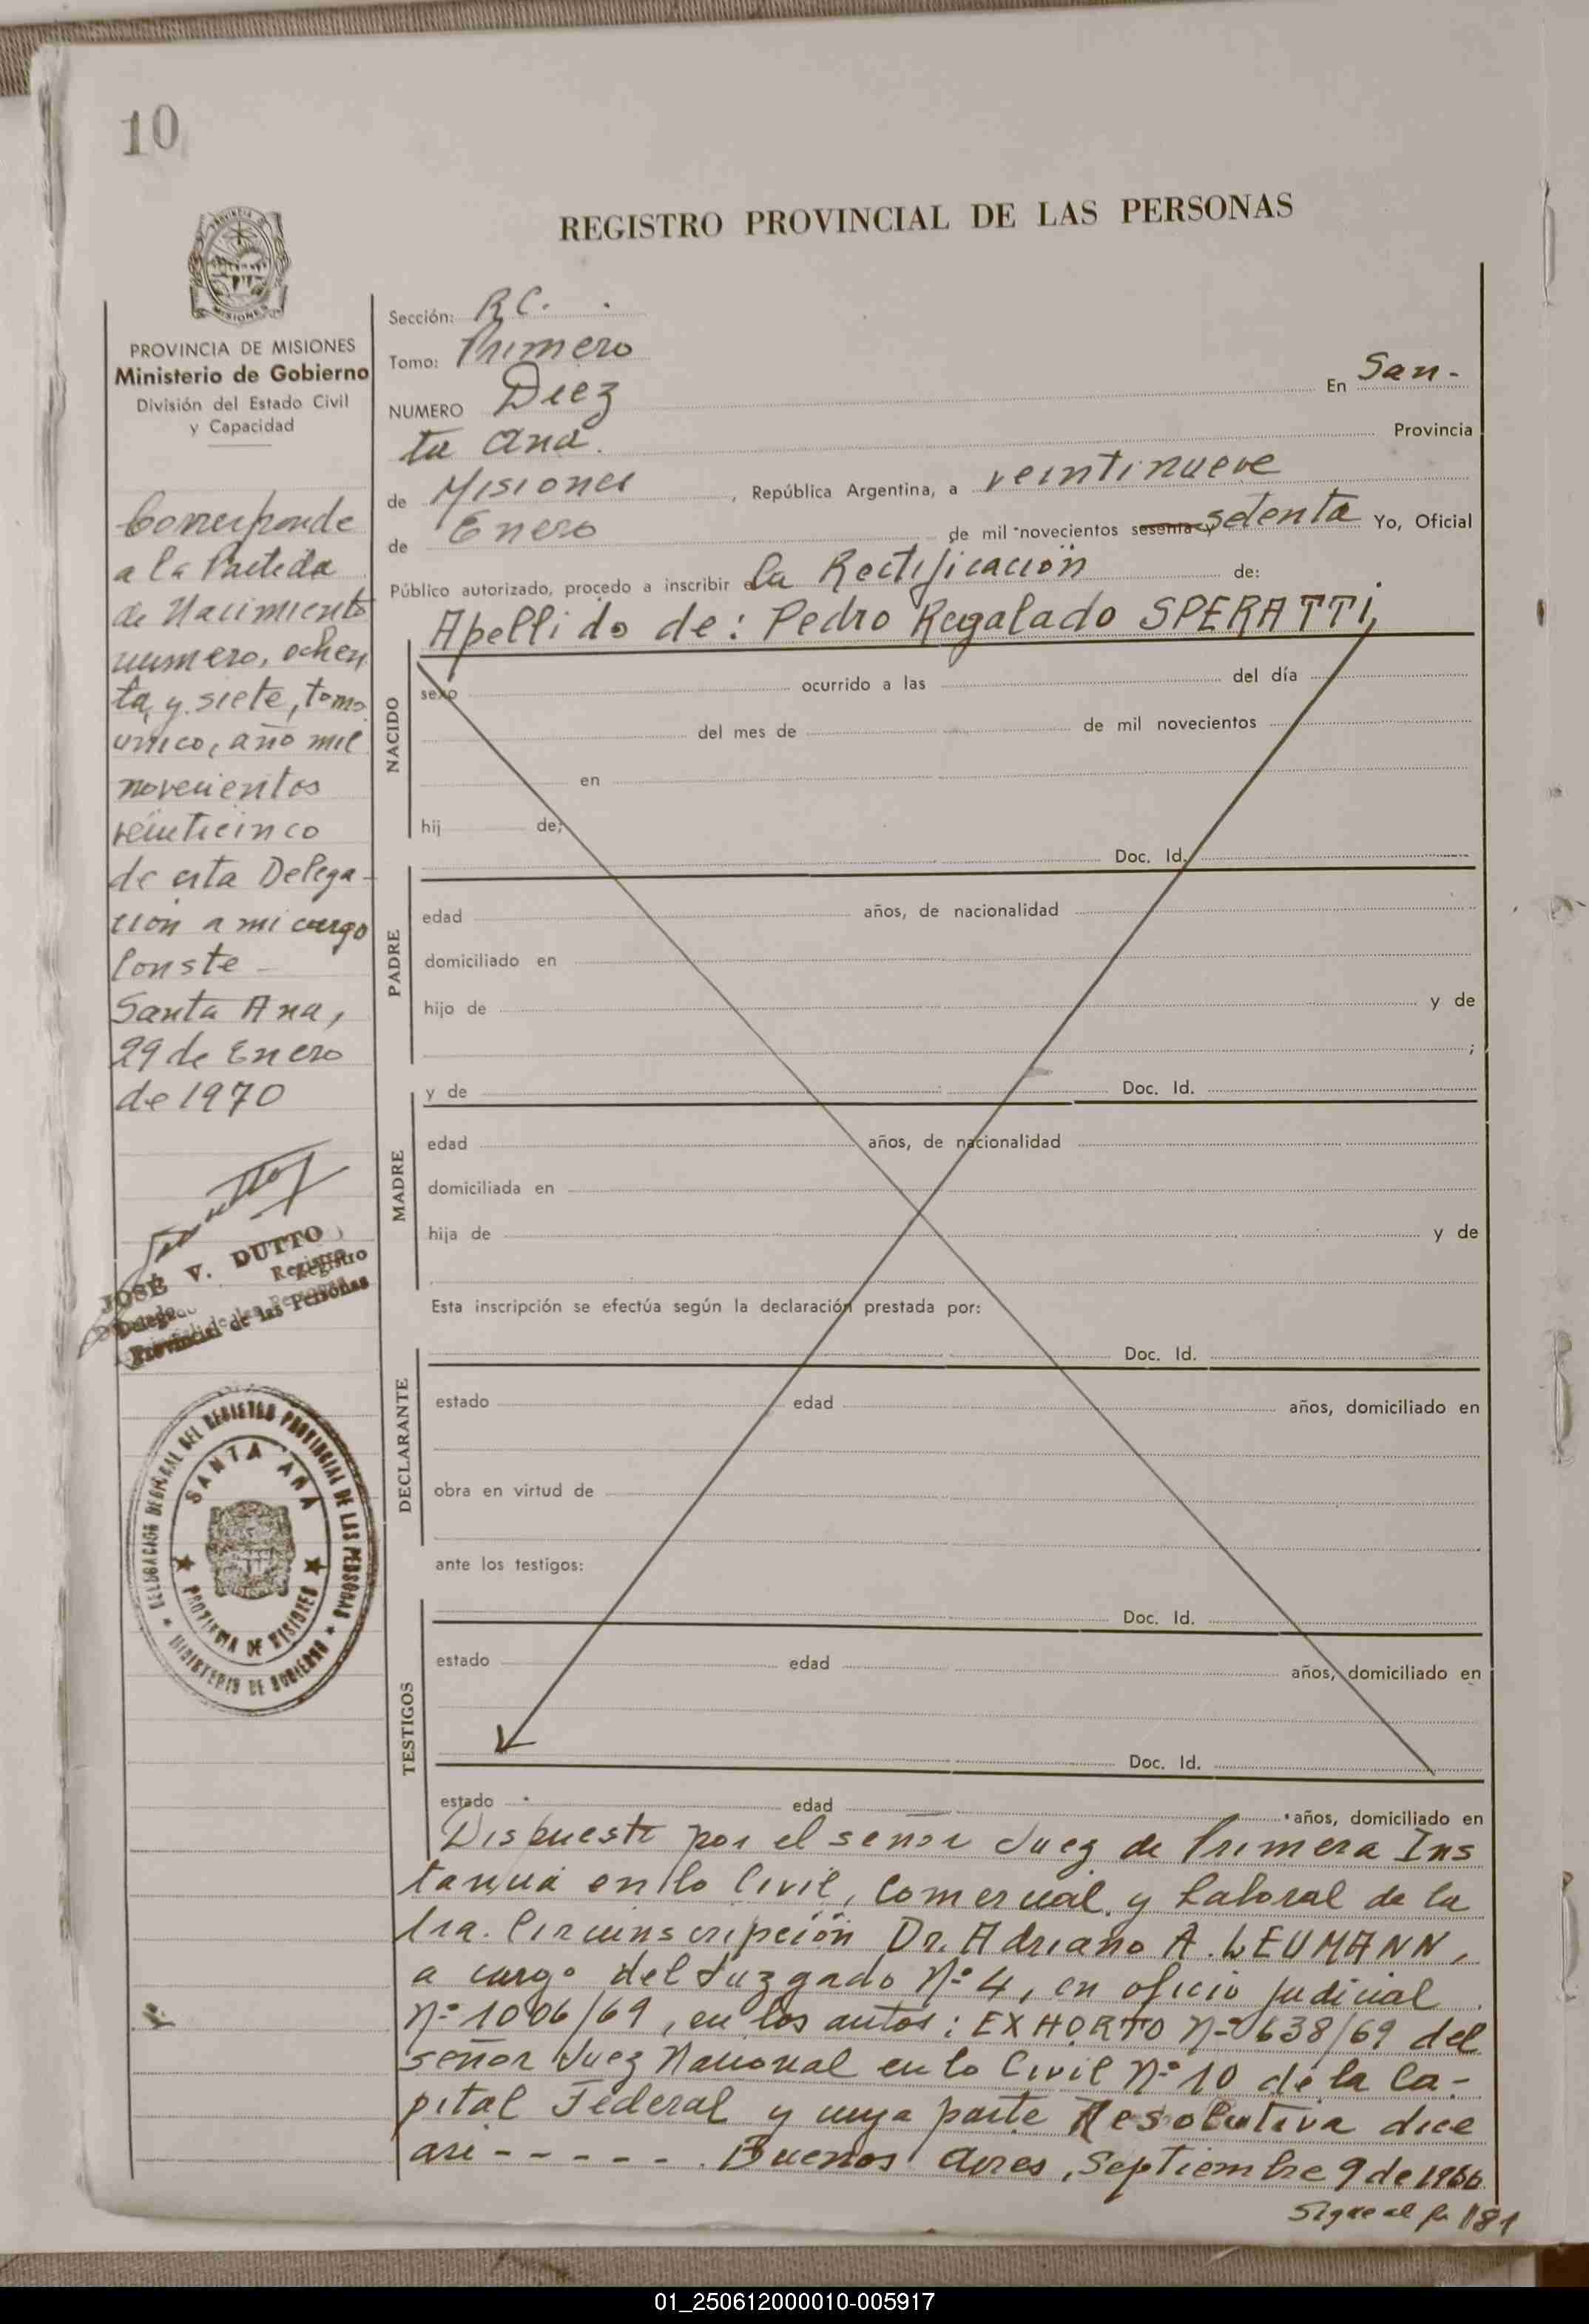 10
REGISTRO PROVINCIAL DE LAS PERSONAS
MISIONES
PROVINCIA DE MISIONES
Ministerio de Gobierno
División del Estado Civil
y Capacidad
Corresponde
a la Partida
de Nacimiento
numero, ochen
ta, y siete, tomo
unico, año mil
novecientos
veinticinco
de esta Delega-
ción a mi cargo
Conste -
Santa Ana,
29 de Enero
de 1970
JOSÉ V. DUTTO
Delegado Registro
Provincial de las Personas
DELEGACION REGIONAL DEL REGISTRO PROVINCIAL DE LAS PERSONAS
SANTA ANA
PROVINCIA DE MISIONES
MINISTERIO DE GOBIERNO
Sección: R C.
Tomo: Primero
NUMERO Diez En San-
ta Ana. Provincia
de Misiones, República Argentina, a veintinueve
de Enero de mil novecientos sesenta y setenta Yo, Oficial
Público autorizado, procedo a inscribir la Rectificación de:
Apellido de: Pedro Regalado SPERATTI,
NACIDO
sexo ocurrido a las del día
del mes de de mil novecientos
en
hij de:
Doc. Id.
PADRE
edad años, de nacionalidad
domiciliado en
hijo de y de
;
y de Doc. Id.
MADRE
edad años, de nacionalidad
domiciliada en
hija de y de
Esta inscripción se efectúa según la declaración prestada por:
Doc. Id.
DECLARANTE
estado edad años, domiciliado en
obra en virtud de
ante los testigos:
Doc. Id.
TESTIGOS
estado edad años, domiciliado en
Doc. Id.
estado edad años, domiciliado en
Dispuesto por el señor Juez de Primera Ins
tancia en lo Civil, Comercial, y Laboral de la
1ra. Circunscripción Dr. Adriano A. LEUMANN,
a cargo del Juzgado Nº 4, en oficio judicial
Nº 1006/69, en los autos: EXHORTO Nº 638/69 del
señor Juez Nacional en lo Civil Nº 10 de la Ca-
pital Federal y cuya parte Resolutiva dice
asi - - - - - . Buenos Aires, Septiembre 9 de 1966
Sigue al fo 181
01_250612000010-005917